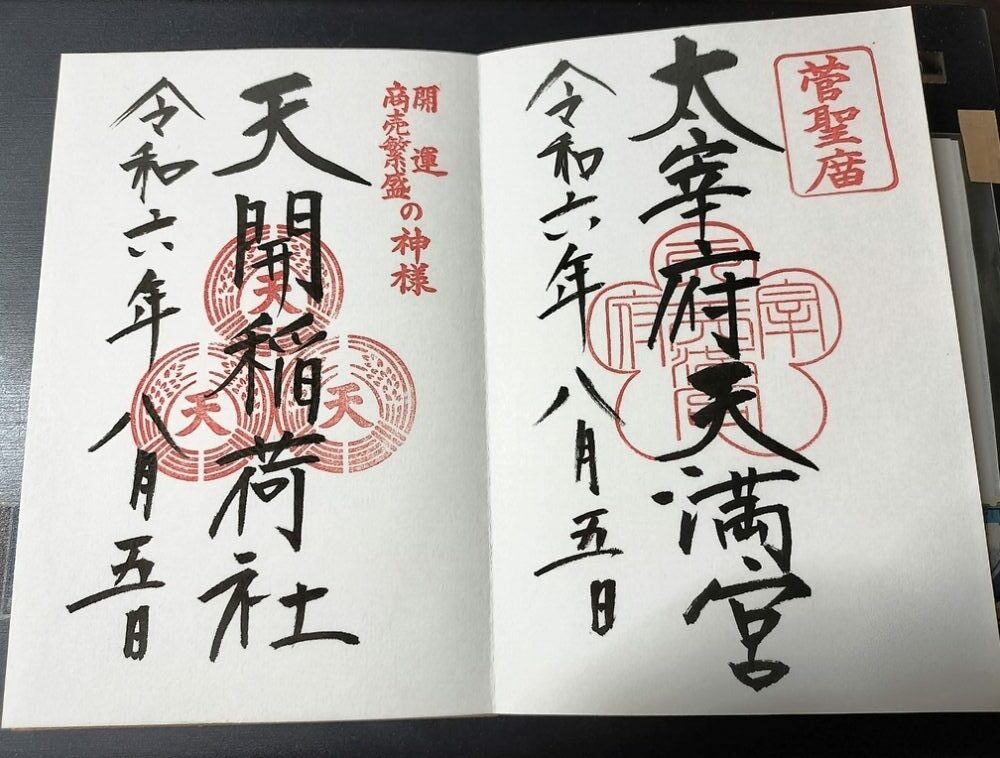 菅聖庿
太宰府天満宮
太宰府天満宮
令和六年八月五日
開運
商売繁盛の神様
天開稲荷社
天
天
天
令和六年八月五日